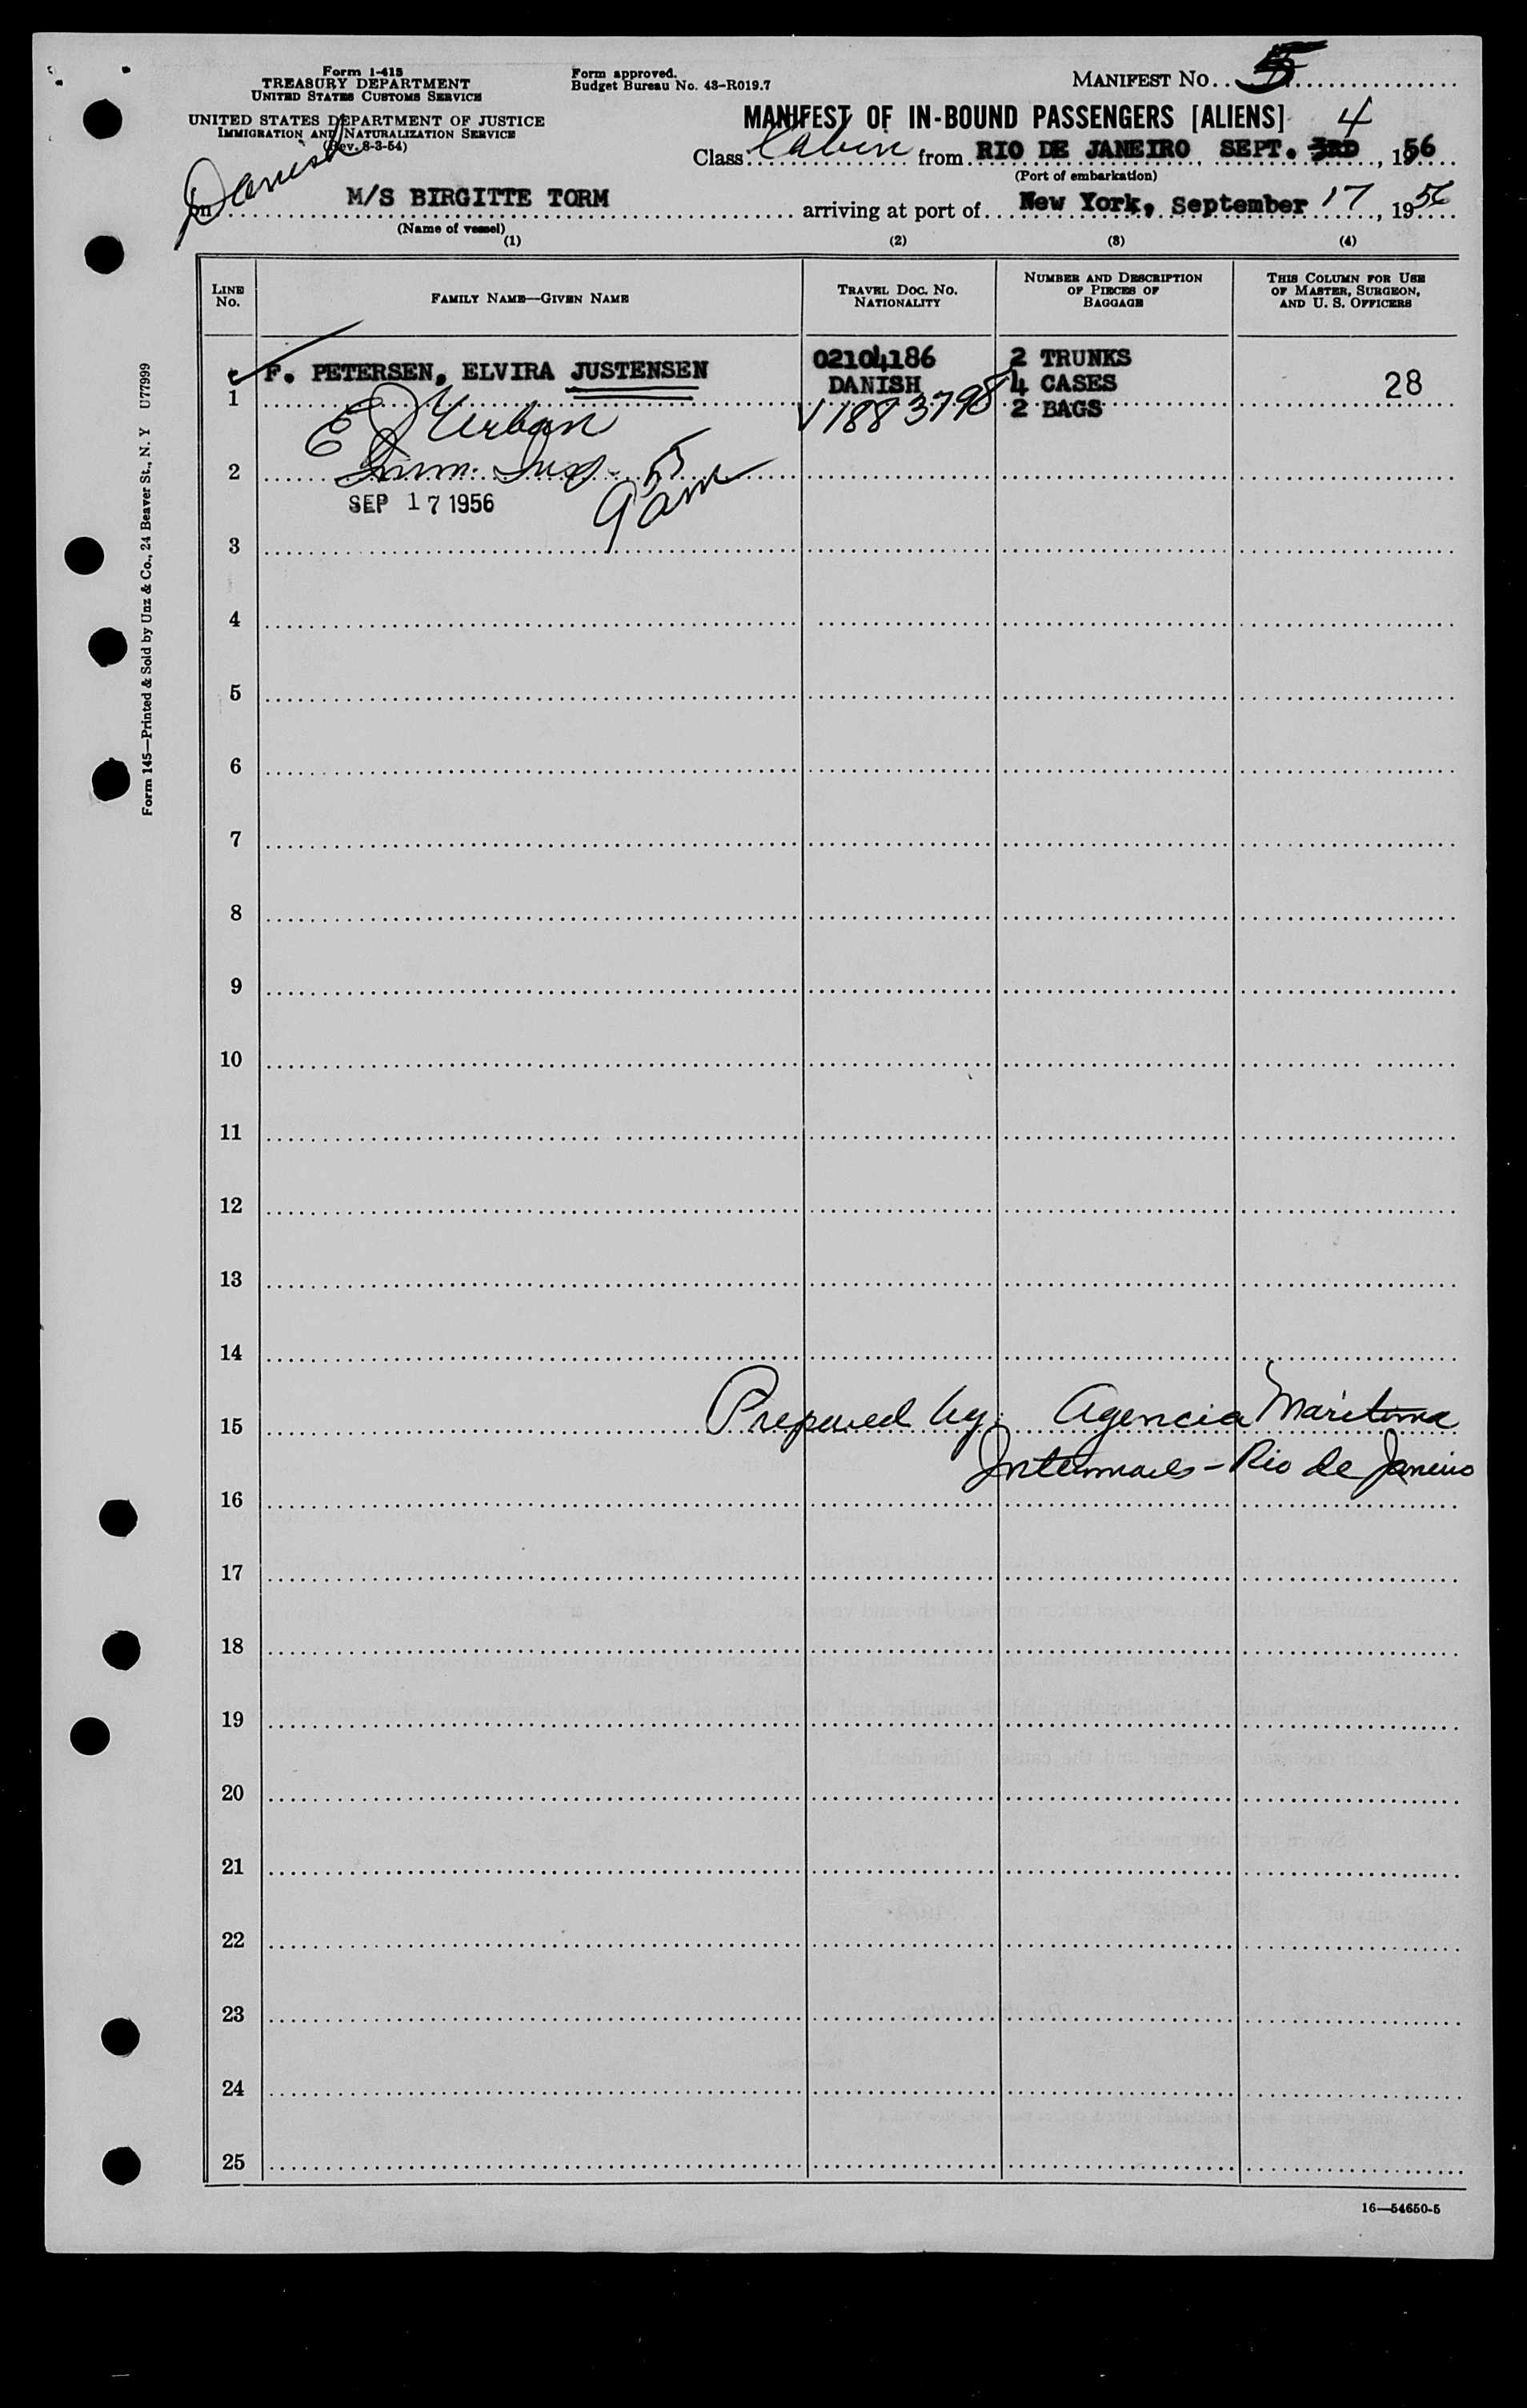 Form I-415
TREASURY DEPARTMENT
UNITED STATES CUSTOMS SERVICE
UNITED STATES DEPARTMENT OF JUSTICE
IMMIGRATION AND NATURALIZATION SERVICE
(Rev. 8-3-54)
Form approved.
Budget Bureau No. 43-R019.7
MANIFEST No. 5
MANIFEST OF IN-BOUND PASSENGERS [ALIENS]
4
Class Cabin from RIO DE JANEIRO SEPT. 3RD, 1956
(Port of embarkation)
Danish
on M/S BIRGITTE TORM arriving at port of New York, September 17, 1956
(Name of vessel)
(1) (2) (3) (4)
LINE No.
FAMILY NAME—GIVEN NAME
TRAVEL DOC. NO.
NATIONALITY
NUMBER AND DESCRIPTION
OF PIECES OF
BAGGAGE
THIS COLUMN FOR USE
OF MASTER, SURGEON,
AND U. S. OFFICERS
1 F. PETERSEN, ELVIRA JUSTENSEN
02104186
DANISH
V1883798
2 TRUNKS
4 CASES
2 BAGS
28
Urban
2 Imm. Insp.
9am
SEP 17 1956
3
4
5
6
7
8
9
10
11
12
13
14
15 Prepared by: Agencia Maritima
Intermares - Rio de Janeiro
16
17
18
19
20
21
22
23
24
25
16—54650-5
Form 145—Printed & Sold by Unz & Co., 24 Beaver St., N. Y U77999